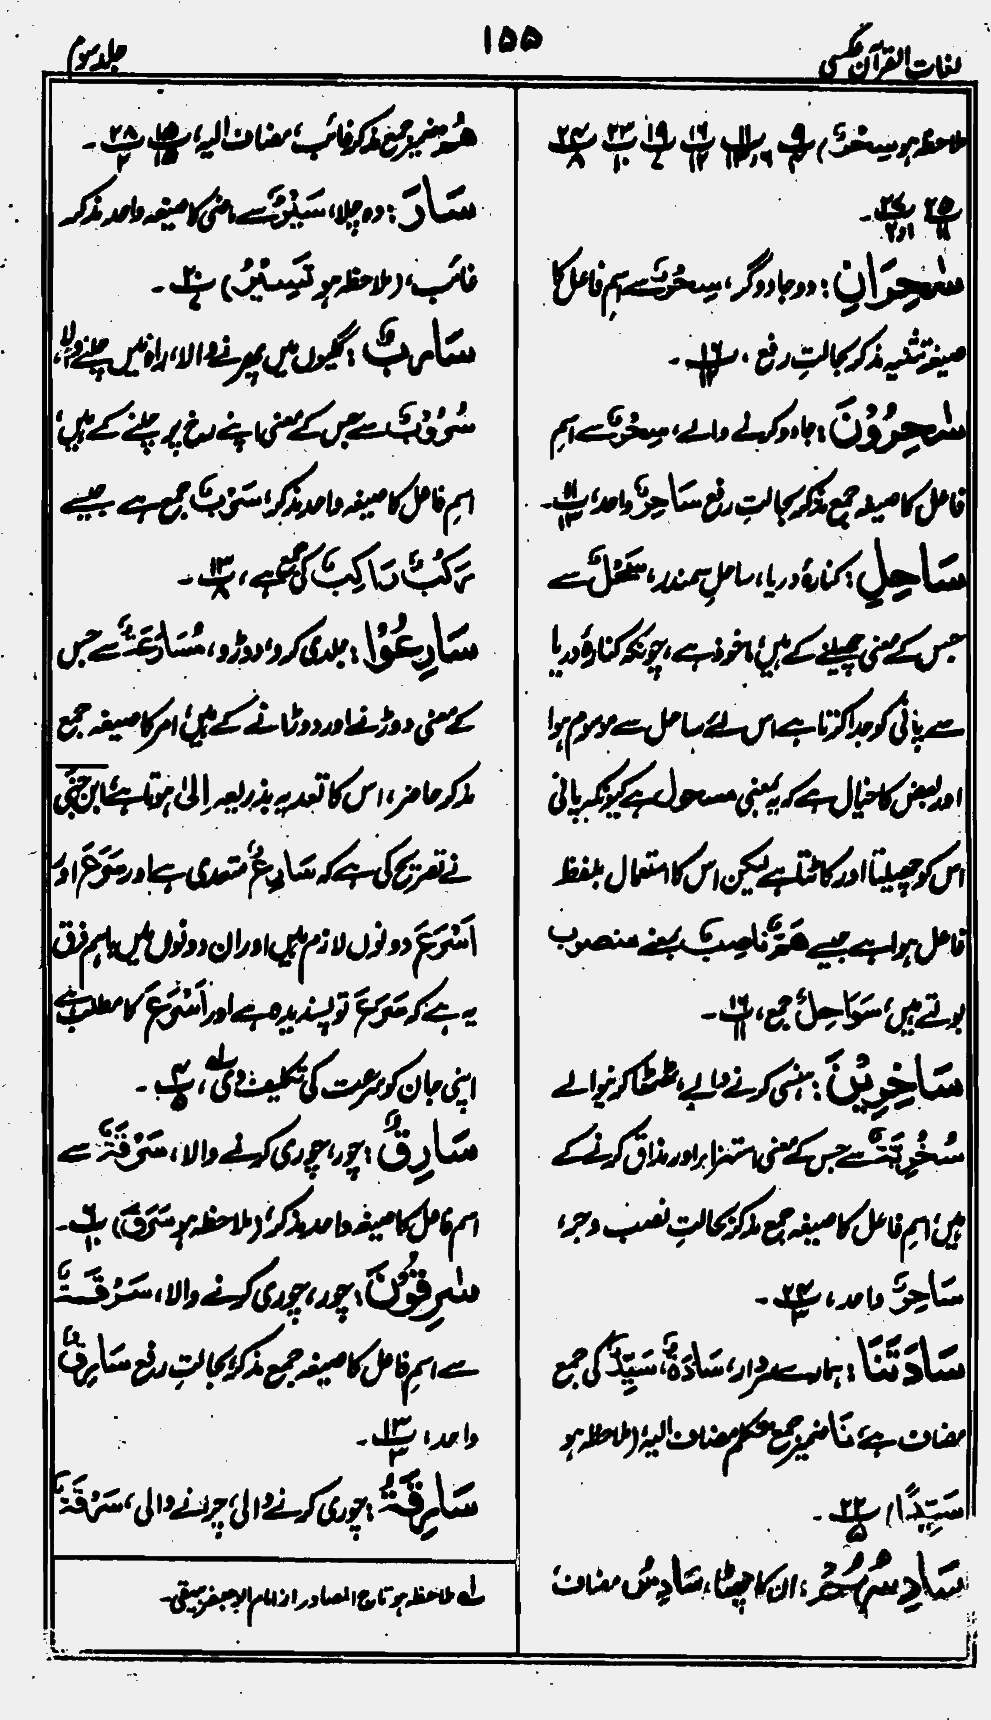 لغات القرآن عکسی
۱۵۵
جلد سوم
ملاحظہ ہو سِحْرٌ) پ
سٰحِرَانِ : دو جادوگر، سِحْرٌ سے اسمِ فاعل کا
صیغہ تثنیہ مذکر بحالتِ رفع ، پ
سٰحِرُوْنَ : جادو کرنے والے، سِحْرٌ سے اسمِ
فاعل کا صیغہ جمع مذکر بحالتِ رفع سَاحِرٌ واحد، پ
سَاحِلِ : کنارۂ دریا، ساحلِ سمندر، سَحْلٌ سے
جس کے معنی چھیلنے کے ہیں، ماخوذ ہے، چونکہ کنارۂ دریا
سے پانی کو جدا کرتا ہے اس لئے ساحل سے موسوم ہوا
اور بعض کا خیال ہے کہ یہ بمعنی مسحول ہے کیونکہ پانی
اس کو چھیلتا اور کاٹتا ہے لیکن اس کا استعمال بلفظ
فاعل ہوا ہے جیسے ھَمٌّ ناصِبٌ بمعنے منصوب
بولتے ہیں، سَوَاحِلُ جمع، پ ۱۶
سَاخِرِیْنَ : ہنسی کرنے والے، ٹھٹھا کرنیوالے
سُخْرِیَّۃٌ سے جس کے معنی استہزاء اور مذاق کرنے کے
ہیں، اسم فاعل کا صیغہ جمع مذکر بحالتِ نصب و جر،
سَاخِرٌ واحد، پ ۲۴
سَادَتَنَا : ہمارے سردار، سَادَۃٌ، سَیِّدٌ کی جمع
مضاف ہے، نَا ضمیر جمع متکلم مضاف الیہ، (ملاحظہ ہو
سَیِّدًا) پ ۲۲
سَادِسُھُمْ : ان کا چھٹا، سَادِسُ مضاف
ھُمْ ضمیر جمع مذکر غائب، مضاف الیہ، پ ۱۵ پ ۲۸
سَارَ : وہ چلا، سَیْرٌ سے ماضی کا صیغہ واحد مذکر
غائب، (ملاحظہ ہو تَسِیْرُ) پ ۲۰
سَارِبٌ : گلیوں میں پھرنے والا، راہ میں چلنے والا،
سُرُوْبٌ سے جس کے معنی اپنے رخ پر چلنے کے ہیں،
اسمِ فاعل کا صیغہ واحد مذکر، سَرْبٌ جمع ہے جیسے
رَکْبٌ رَاکِبٌ کی جمع ہے، پ ۱۳
سَارِعُوْا : جلدی کرو، دوڑو، مُسَارَعَۃٌ سے جس
کے معنی دوڑنے اور دوڑانے کے ہیں، امر کا صیغہ جمع
مذکر حاضر، اس کا تعدیہ بذریعہ اِلیٰ ہوتا ہے، ابن جنی
نے تصریح کی ہے کہ سَارِعُ متعدی ہے اور سَرَعَ اور
اَسْرَعَ دونوں لازم ہیں اور ان دونوں میں باہم فرق
یہ ہے کہ سَرَعَ تو پسندیدہ ہے اور اَسْرَعَ کا مطلب ہے
اپنی جان کو سرعت کی تکلیف دی لہ، پ ۴
سَارِقُ : چور، چوری کرنے والا، سَرْقَۃٌ سے
اسم فاعل کا صیغہ واحد مذکر، (ملاحظہ ہو سَرَقَ) پ ۶
سٰرِقُوْنَ : چور، چوری کرنے والا، سَرْقَۃٌ
سے اسمِ فاعل کا صیغہ جمع مذکر، بحالتِ رفع سَارِقٌ
واحد، پ ۱۳
سَارِقَۃُ : چوری کرنے والی، چرانے والی، سَرْقَۃٌ
لہ ملاحظہ ہو تاج المصادر از امام ابو جعفر بیہقی۔